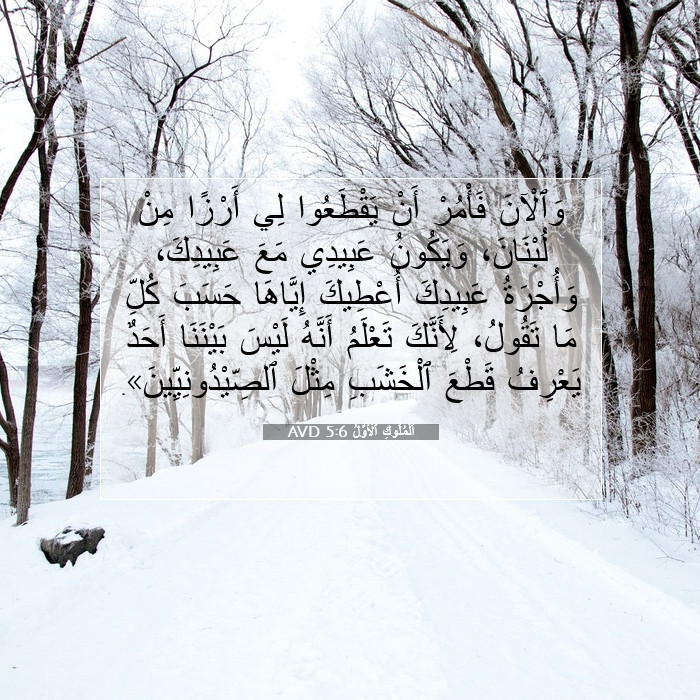 وَٱلْآنَ فَأْمُرْ أَنْ يَقْطَعُوا لِي أَرْزًا مِنْ
لُبْنَانَ، وَيَكُونُ عَبِيدِي مَعَ عَبِيدِكَ،
وَأُجْرَةُ عَبِيدِكَ أُعْطِيكَ إِيَّاهَا حَسَبَ كُلِّ
مَا تَقُولُ، لِأَنَّكَ تَعْلَمُ أَنَّهُ لَيْسَ بَيْنَنَا أَحَدٌ
يَعْرِفُ قَطْعَ ٱلْخَشَبِ مِثْلَ ٱلصِّيْدُونِيِّينَ».
ٱلْمُلُوكِ ٱلْأَوَّلُ 5:6 AVD